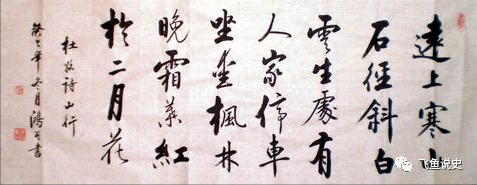 遠上寒山
石徑斜白
雲生處有
人家停車
坐愛楓林
晚霜葉紅
於二月花
杜牧詩山行
年冬月鴻書
飞鱼说史